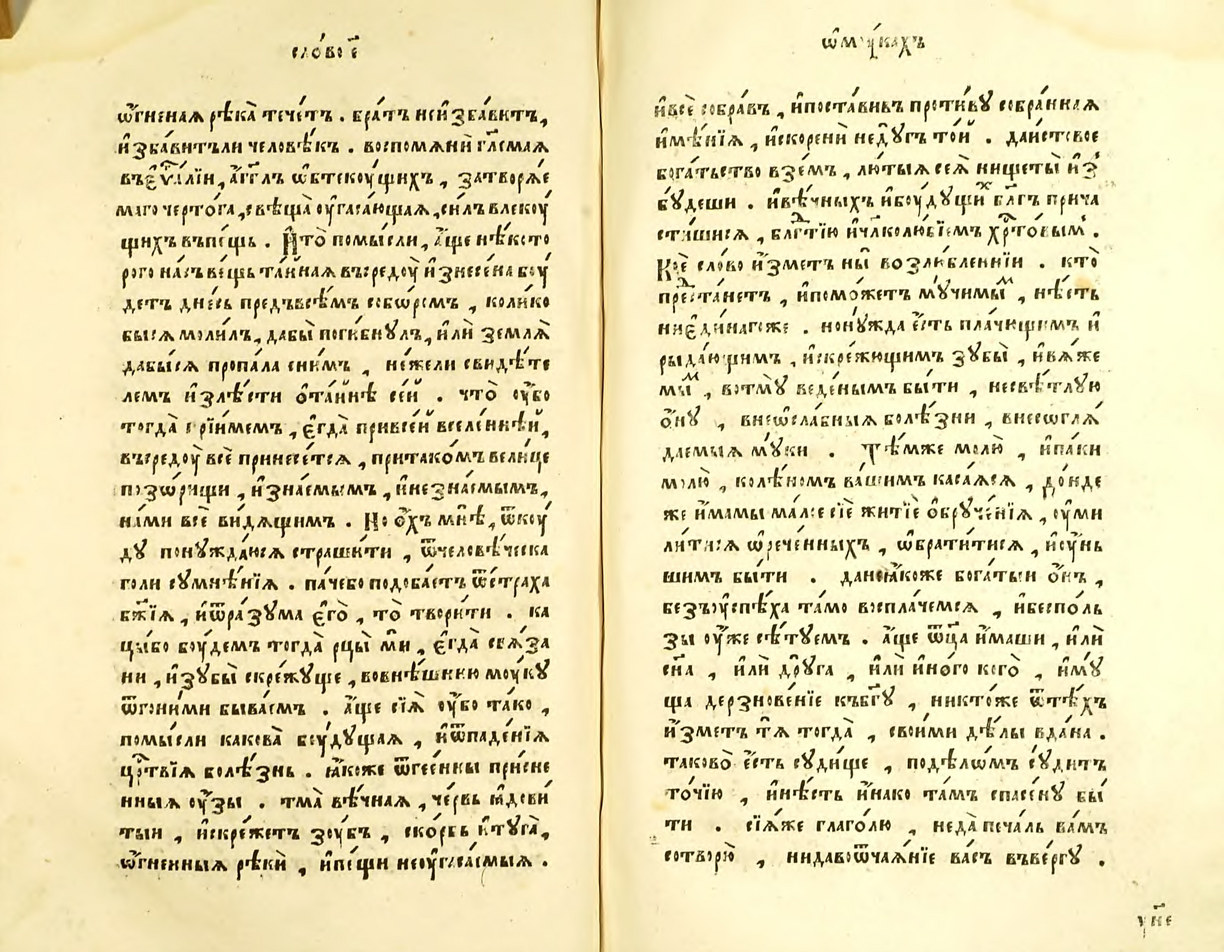 сло́во є҃
ѻ҆́гненаѧ рѣка̀ тече́тъ . бра́тъ неи҆зба́витъ,
и҆зба́витъли человѣ́къ . воспомѧнѝ гл҃емаѧ
въє҆ѵ҃а́лїи, а҆́гг҃лъ ѡ҆бтекоу́щихъ , затворѧ́е
маго черто́га, свѣща̀ оу҆гаса́ющаѧ, си́лъ влекоу́
щихъ въпе́щь . И҆ то̀ помы́сли, а҆́ще нѣ́кото
рого на́съ ве́щь та́йнаѧ въсредоу̀ и҆знесена̀ боу́
детъ дне́сь предъвсѣ́мъ собо́ромъ , коли́ко
бысѧ моли́лъ, дабы̀ поги́бнꙋлъ, и҆лѝ землѧ̀
дабы́сѧ пропа́ла сни́мъ , не́жели свидѣ́те
лемъ и҆злѣ́сти ѻ҆та́йнѣ се́й . что̀ оу҆́бо
тогда̀ прїи́мемъ , є҆гда̀ привсе́й вселе́ннѣй,
въсредоу̀ всѐ принесе́тсѧ , притако́мъ вели́це
позѡ́рищи , и҆зна́емымъ , и҆незна́емымъ,
на́ми всѐ ви́дѧщимъ . Но ѻ҆́хъ мнѣ̀, ѿкоу́
дꙋ понꙋжда́юсѧ страши́ти , ѿчеловѣ́ческа
голи сꙋмнѣ́нїѧ . па́чебо подоба́етъ ѿстра́ха
бж҃їѧ , и҆ѿра́зꙋма є҆гѡ̀ , то̀ твори́ти . ка
цы́бо боу́демъ тогда̀ рцы́ ми , є҆гда̀ свѧ́за
ни , и҆зꙋбы̀ скреже́ꙋще , вовнѣ́шнюю моу́кꙋ
ѿгони́ми быва́емъ . а҆́ще сїѧ̀ оу҆́бо та́ко ,
помы́сли какова̀ боу́дꙋщаѧ , и҆ѿпаде́нїѧ
црⷭ҇твїѧ болѣ́знь . ꙗ҆́коже ѿгее́нны присне
нныѧ оу҆́зы . тма̀ вѣ́чнаѧ , че́рвь ꙗ҆дови
тыи , и҆скре́жетъ зоу́бъ , ско́рбь и҆тꙋга̀,
ѻ҆́гненныѧ рѣ́ки , и҆пе́щи неоу҆гаса́емыѧ .
ѡ҆мꙋ́кахъ
и҆всѐ собра́въ , и҆поста́вивъ проти́вꙋ собра́ннаѧ
и҆мѣ́нїѧ , и҆скоренѝ недꙋ́гъ то́й . даи҆стовое
бога́тьство взе́мъ , лю́тыѧ сеѧ̀ нищеты̀ и҆з̾
бꙋ́деши . и҆вѣ́чныхъ и҆боу́дꙋщиⷯ бл҃гъ прича
сти́шисѧ , блгⷣтїю и҆чл҃колю́бїемъ хрⷭ҇то́вымъ .
Ко́е сло́во и҆́зметъ ны̀ возлю́бленнїи . кто̀
преста́нетъ , и҆помо́жетъ мꙋ́чимыⷨ , нѣ́сть
ниє҆ди́нагоже . нонꙋ́жда є҆́сть пла́чющимъ и҆
рыда́ющимъ , и҆скре́жющимъ зꙋ́бы , и҆вѧ́же
мыⷨ , вотмꙋ̀ веде́нымъ бы́ти , несвѣ́тлꙋю
ѻ҆́нꙋ , внеѡ҆сла́бныѧ болѣ́зни , внесоглѧ́
даемыѧ мꙋ́ки . Тѣ́мже молю̀ , и҆па́ки
молю̀ , колѣ́номъ ва́шимъ каса́ѧсѧ , до́нде
же и҆́мамы ма́лое сїѐ житїѐ ѻ҆брꙋче́нїѧ , оу҆ми
ли́тисѧ ѡ҆рече́нныхъ , ѡ҆брати́тисѧ , и҆оу҆́нь
шимъ бы́ти . данеꙗ҆́коже бога́тыи ѻ҆́нъ ,
безъоу҆спѣ́ха та́мо воспла́чемсѧ , и҆бесполь
зы оу҆́же сѣ́тꙋемъ . а҆́ще ѻ҆ц҃а̀ и҆́маши , и҆лѝ
сн҃а , и҆лѝ дрꙋ́га , и҆лѝ и҆но́го кого̀ , и҆мꙋ́
ща дерзнове́нїе къбг҃ꙋ , никто́же ѿтѣ́хъ
и҆́зметъ тѧ̀ тогда̀ , свои́ми дѣ́лы вда́на .
таково̀ є҆́сть сꙋди́ще , подѣлѡ́мъ сꙋди́тъ
то́чїю , и҆нѣ́сть и҆на́ко та́мъ спасе́нꙋ бы́
ти . сїѧ́же глаго́лю , неда̀ печа́ль ва́мъ
сотворю̀ , нидавоѿча́ѧнїе ва́съ въве́ргꙋ .